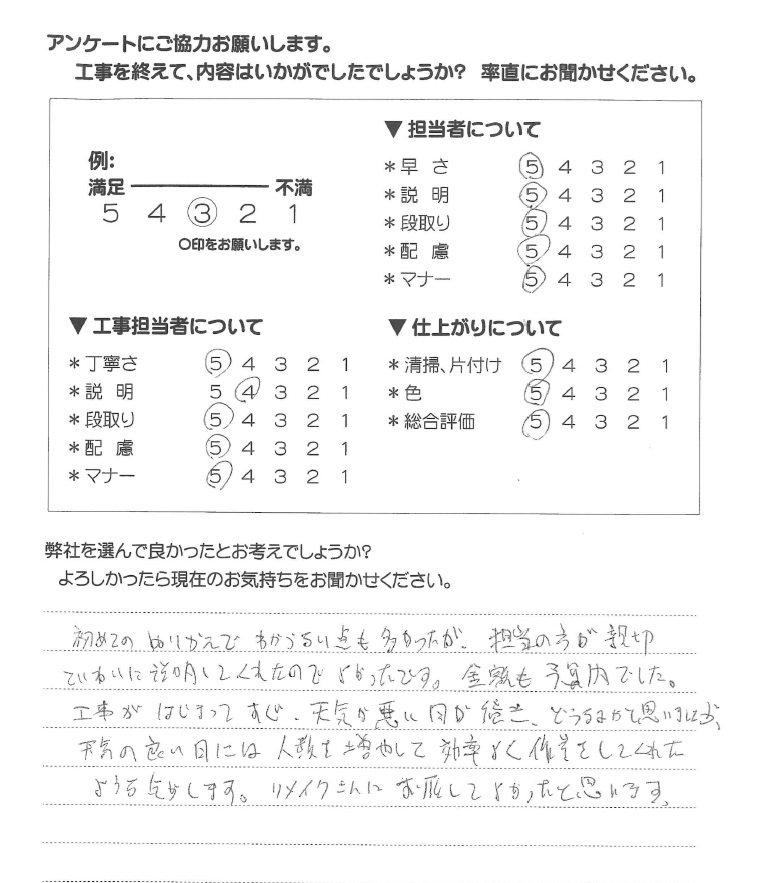 アンケートにご協力お願いします。
工事を終えて、内容はいかがでしたでしょうか? 率直にお聞かせください。
例:
満足 不満
5 4 3 2 1
○印をお願いします。
▼ 担当者について
*早さ 5 4 3 2 1
*説明 5 4 3 2 1
*段取り 5 4 3 2 1
*配慮 5 4 3 2 1
*マナー 5 4 3 2 1
▼ 工事担当者について
*丁寧さ 5 4 3 2 1
*説明 5 4 3 2 1
*段取り 5 4 3 2 1
*配慮 5 4 3 2 1
*マナー 5 4 3 2 1
▼ 仕上がりについて
*清掃、片付け 5 4 3 2 1
*色 5 4 3 2 1
*総合評価 5 4 3 2 1
弊社を選んで良かったとお考えでしょうか?
よろしかったら現在のお気持ちをお聞かせください。
初めてのぬりかえでわからない点も多かったが、担当の方が親切
ていねいに説明してくれたのでよかったです。金額も予算内でした。
工事がはじまってすぐ、天気が悪い日が続き、どうなるかと思いましたが、
天気の良い日には人数を増やして効率よく作業をしてくれた
ような気がします。リメイクさんにお願いしてよかったと思います。